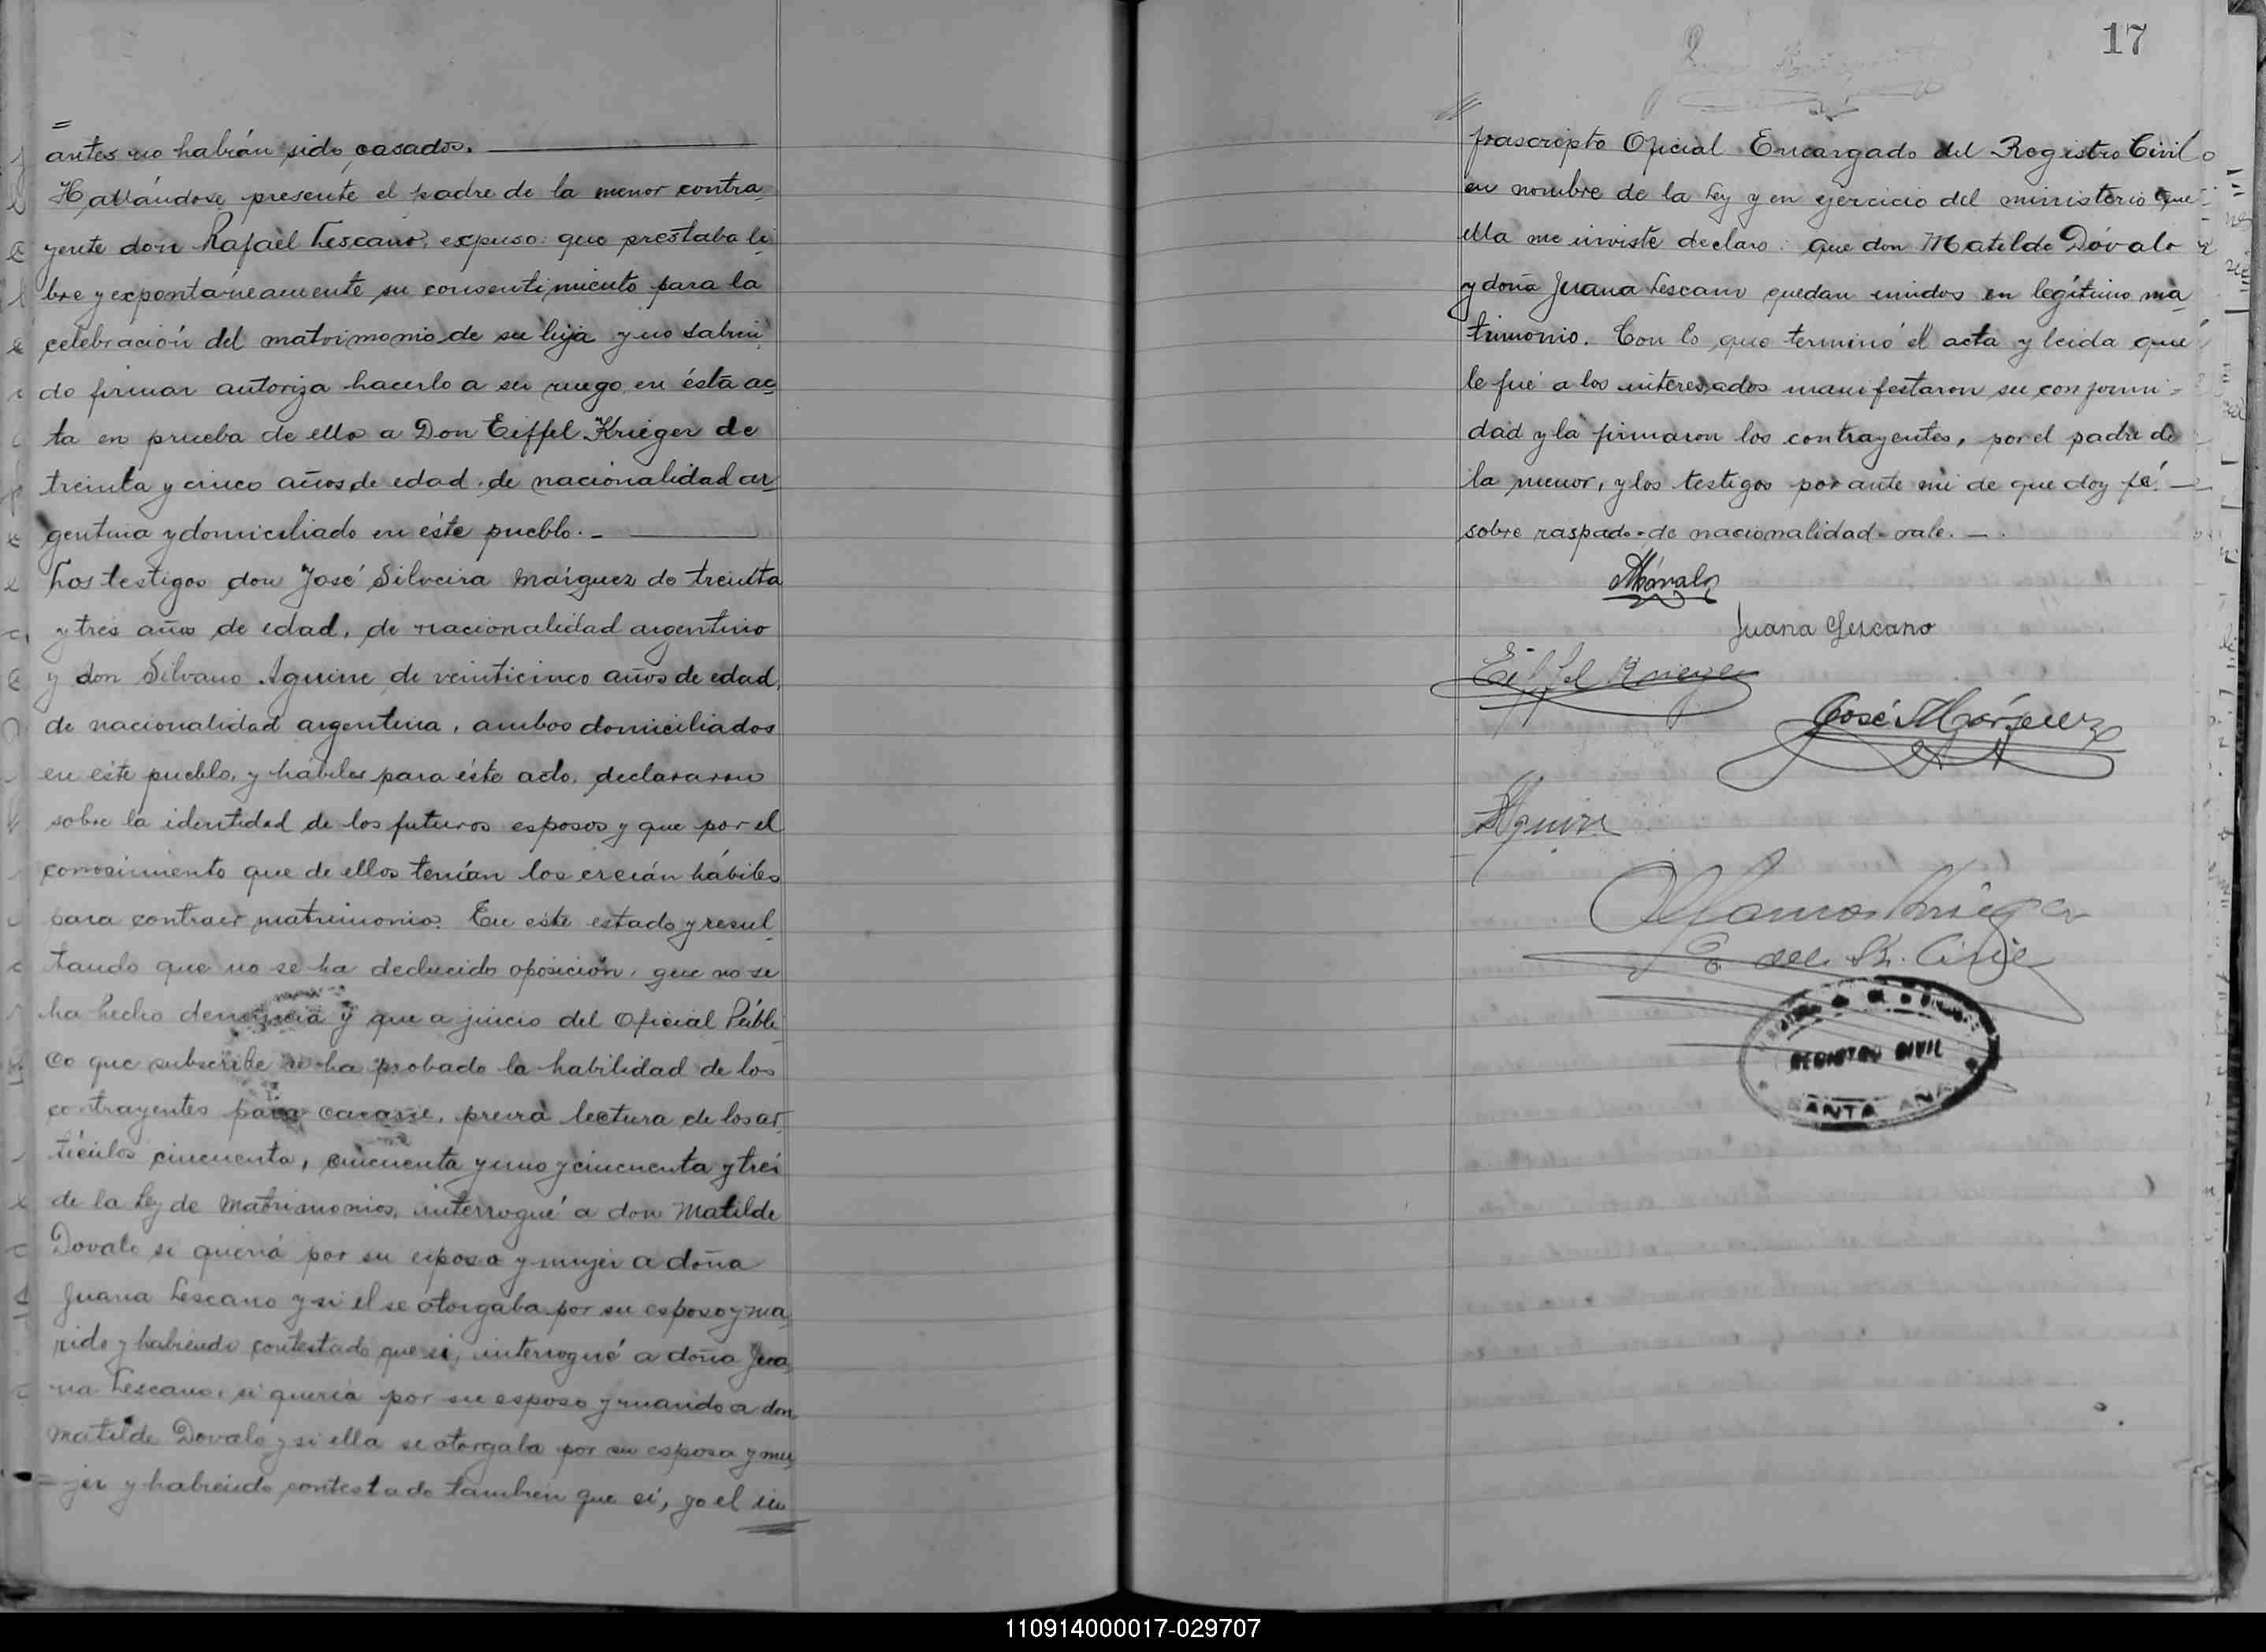 =
antes no habián sido casados.
Hallándose presente el padre de la menor contra-
yente don Rafael Lescano, expuso: que prestaba li-
bre y expontáneamente su consentimiento para la
celebración del matrimonio de su hija y no sabien-
do firmar autoriza hacerlo a su ruego en ésta ac-
ta en prueba de ello a Don Eiffel Krieger de
treinta y cinco años de edad de nacionalidad ar-
gentina y domiciliado en éste pueblo.-
Los testigos don José Silveira Marquez de treinta
y tres años de edad, de nacionalidad argentino
y don Silvano Aguirre de veinticinco años de edad,
de nacionalidad argentina, ambos domiciliados
en éste pueblo, y hábiles para éste acto, declararon
sobre la identidad de los futuros esposos y que por el
conocimiento que de ellos tenían los creián hábiles
para contraer matrimonio. En este estado y resul-
tando que no se ha deducido oposición, que no se
ha hecho denuncia y que a juicio del Oficial Públi-
co que subscribe se ha probado la habilidad de los
contrayentes para casarse, previa lectura de los ar-
ticulos cincuenta, cincuenta y uno y cincuenta y tres
de la Ley de Matrimonios, interrogué a don Matilde
Dovalo si queriá por su esposa y mujer a doña
Juana Lescano y si el se otorgaba por su esposo y ma-
rido y habiendo contestado que si, interrogué a doña Jua-
na Lescano, si queria por su esposo y marido a don
Matilde Dovalo y si ella se otorgaba por su esposa y mu-
jer y habiendo contestado tambien que si, yo el in
17
frascripto Oficial Encargado del Registro Civil
en nombre de la Ley y en ejercicio del ministerio que
ella me inviste declaro: que don Matilde Dóvalo
y doña Juana Lescano quedan unidos en legítimo ma-
trimonio. Con lo que terminó el acta y leida que
le fué a los interesados manifestaron su conformi-
dad y la firmaron los contrayentes, por el padre de
la menor, y los testigos por ante mi de que doy fé.
sobre raspado-de nacionalidad-vale.-
Juana Lescano
Eiffel Krieger
José Márquez
SAguirre
Krieger
E. del R. Civil
REGISTRO CIVIL
SANTA ANA
110914000017-029707